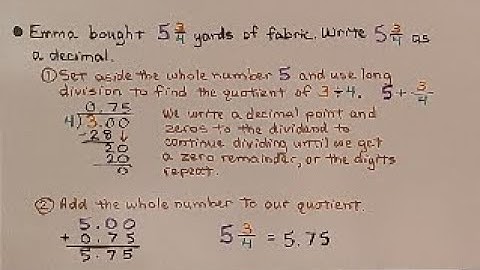 • Emma bought 5 3/4 yards of fabric. Write 5 3/4 as
a decimal.
① Set aside the whole number 5 and use long
division to find the quotient of 3÷4. 5 + 3/4
0.75
4)3.00
-28↓
20
20
0
We write a decimal point and
zeros to the dividend to
continue dividing until we get
a zero remainder, or the digits
repeat.
② Add the whole number to our quotient.
5.00
+ 0.75
5.75
5 3/4 = 5.75